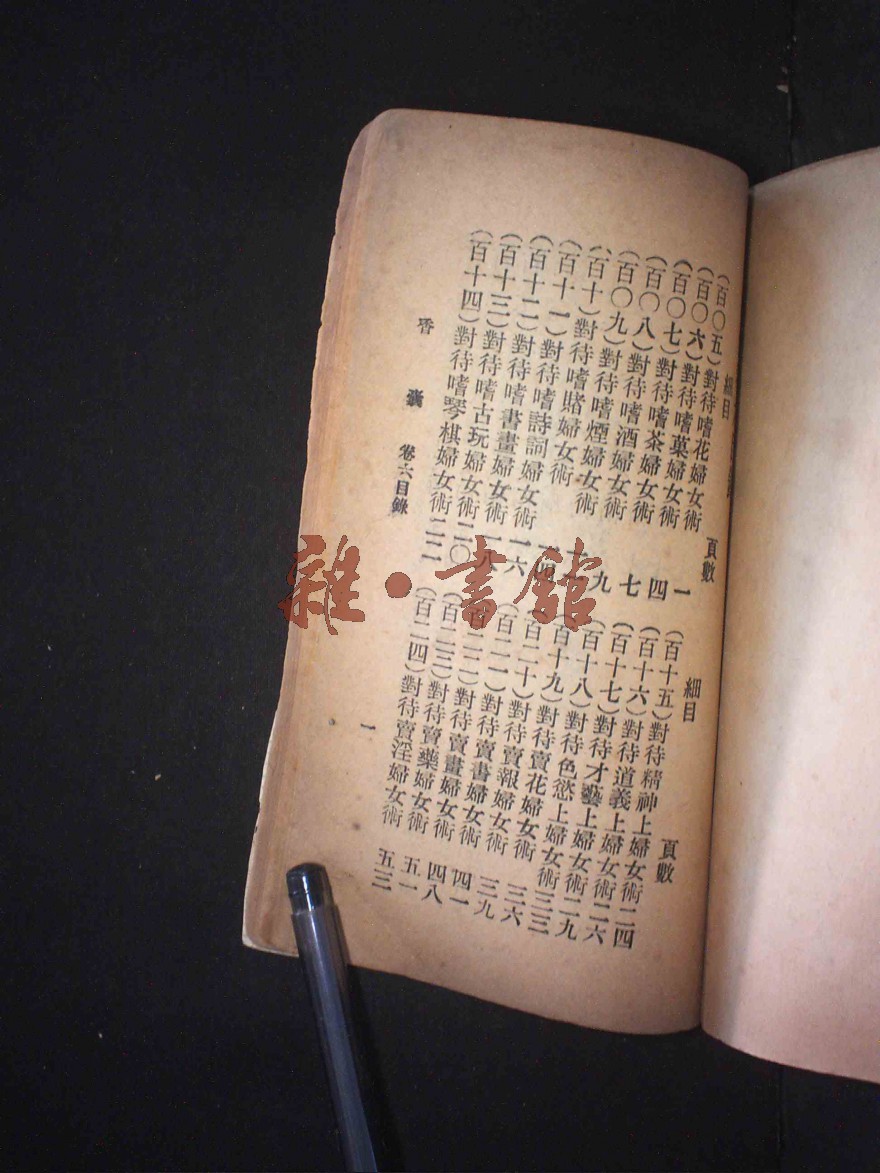 細目 頁數
(百〇五)對待嗜花婦女術 一
(百〇六)對待嗜菓婦女術 四
(百〇七)對待嗜茶婦女術 七
(百〇八)對待嗜酒婦女術 九
(百〇九)對待嗜煙婦女術
(百十)對待嗜賭婦女術
(百十一)對待嗜詩詞婦女術 一六
(百十二)對待嗜書畫婦女術 一八
(百十三)對待嗜古玩婦女術 二〇
(百十四)對待嗜琴棋婦女術 二二
細目 頁數
(百十五)對待精神上婦女術 二四
(百十六)對待道義上婦女術 二六
(百十七)對待才藝上婦女術 二九
(百十八)對待色慾上婦女術 三三
(百十九)對待賣花婦女術 三六
(百二十)對待賣報婦女術 三九
(百二一)對待賣書婦女術 四一
(百二二)對待賣畫婦女術 四八
(百二三)對待賣藥婦女術 五一
(百二四)對待賣淫婦女術 五三
香囊 卷六目錄 一
雜·書館